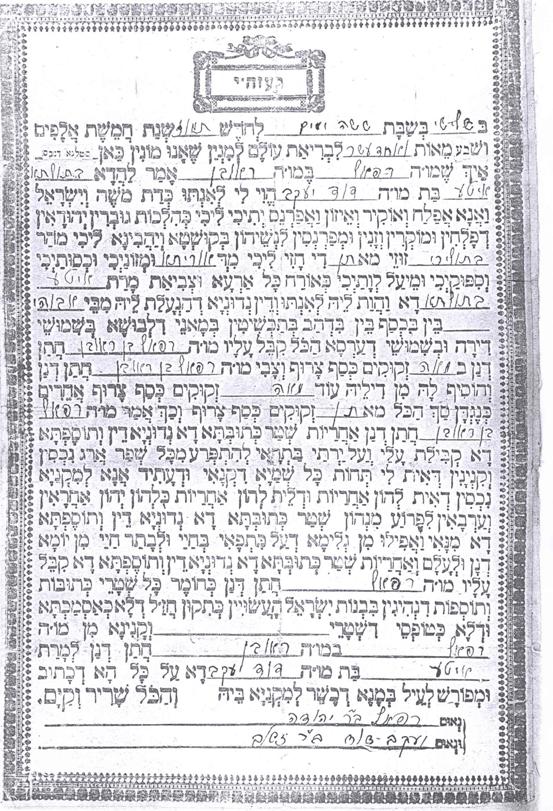 בעזה״י
ב שלישי בשבת ששה ימים לחדש תמוז שנת חמשת אלפים
ושבע מאות ואחד עשר לבריאת עולם למנין שאנו מונין כאן
איך שמו״ה רפאל במו״ה ראובן אמר להדא בתולתא
איטע בת מו״ה דוד יעקב הוי לי לאנתו כדת משה וישראל
ואנא אפלח ואוקיר ואיזון ואפרנס יתיכי ליכי כהלכות גוברין יהודאין
דפלחין ומוקרין וזנין ומפרנסין לנשיהון בקושטא ויהבינא ליכי מוהר
בתוליכי זוזי מאתן די חזי ליכי מדאורייתא ומזוניכי וכסותיכי
וסיפוקיכי ומיעל לותיכי כאורח כל ארעא וצביאת מרת איטע
בתולתא דא והות ליה לאנתו ודין נדוניא דהנעלת ליה מבי אבוה
בין בכסף בין בדהב בתכשיטין במאני דלבושא בשמושי
דירה ובשמושי דערסא הכל קבל עליו מו״ה רפאל בן ראובן חתן
דנן ב מאה זקוקים כסף צרוף וצבי מו״ה רפאל בן ראובן חתן דנן
והוסיף לה מן דיליה עוד מאה זקוקים כסף צרוף אחרים
כנגדן סך הכל מאתן זקוקים כסף צרוף וכך אמר מו״ה רפאל
בן ראובן חתן דנן אחריות שטר כתובתא דא נדוניא דין ותוספתא
דא קבילת עלי ועל ירתי בתראי להתפרע מכל שפר ארג נכסין
וקנינין דאית לי תחות כל שמיא דקנאי ודעתיד אנא למקניא
נכסין דאית להון אחריות ודלית להון אחריות כלהון יהון אחראין
וערבאין לפרוע מנהון שטר כתובתא דא נדוניא דין ותוספתא
דא מנאי ואפילו מן גלימא דעל כתפאי בחיי ובתר חיי מן יומא
דנן ולעלם ואחריות שטר כתובתא דא נדוניא דין ותוספתא דא קבל
עליו מו״ה רפאל חתן דנן כחומר כל שטרי כתובות
ותוספות דנהיגין בבנות ישראל העשויין כתקון חז״ל דלא כאסמכתא
ודלא כטופסי דשטרי וקנינא מן מו״ה
רפאל במו״ה ראובן חתן דנן למרת
איטע בת מו״ה דוד יעקב דא על כל הא דכתוב
ומפורש לעיל במנא דכשר למקניא ביה והכל שריר וקים.
נאום רפאל ב״ר יהודה
ונאום יעקב